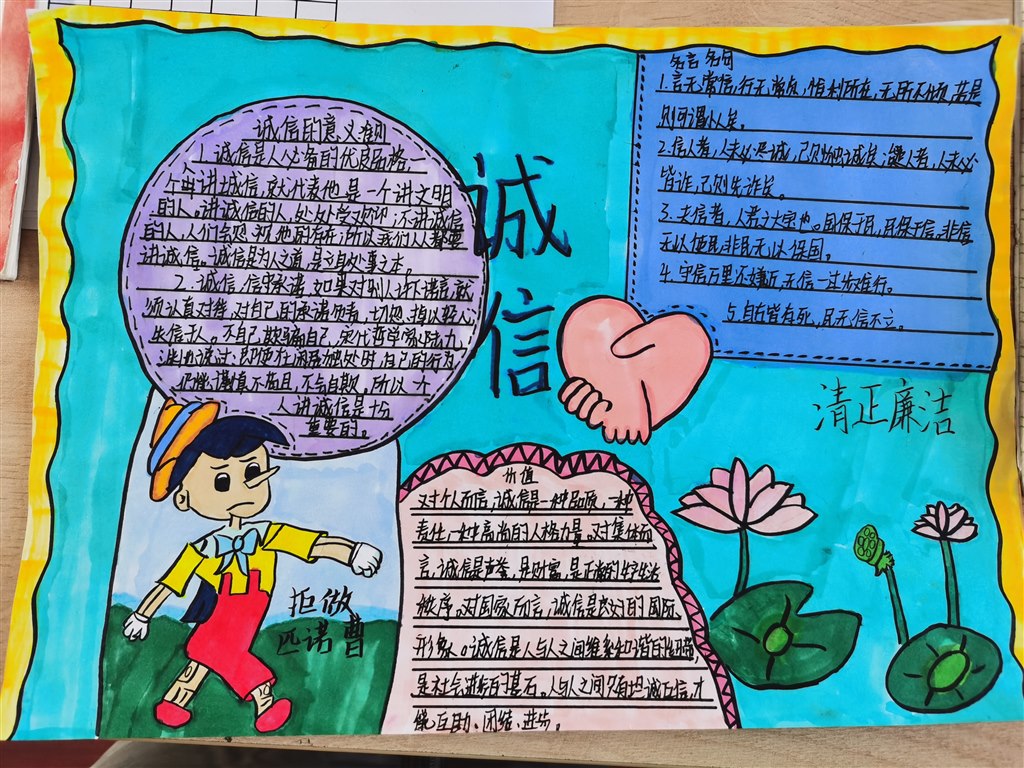 诚信
诚信的意义准则
1.诚信是人必备的优良品格,一
个讲诚信,就代表他是一个讲文明
的人。讲诚信的人,处处受欢迎;不讲诚信
的人,人们会忽视他的存在;所以我们人人都要
讲诚信。诚信是为人之道,是立身处事之本。
2.诚信,信守承诺,如果对别人许诺言,就
须认真对待,对自己的承诺负责,切忌掉以轻心
失信于人。不自己欺骗自己,宋代哲学家陆九
渊也说过:即使在闲居独处时,自己的行为
仍谨慎不苟且,不会自欺。所以一个
人讲诚信是十分
重要的。
名言名句
1.言无常信,行无常贞,惟利所在,无所不倾,若是
则可谓小人矣。
2.信人者,人未必尽诚,己则独诚矣;疑人者,人未必
皆诈,己则先诈矣。
3.夫信者,人君之大宝也。国保于民,民保于信,非信
无以使民,非民无以保国。
4.守信万里不嫌近,无信一过步难行。
5.自古皆有死,民无信不立。
清正廉洁
价值
对个人而言,诚信是一种品质,一种
责任,一种高尚的人格力量。对集体而
言,诚信是声誉,是财富,是正常的生产生活
秩序。对国家而言,诚信是良好的国际
形象。诚信是人与人之间维系和谐的纽带,
是社会进步的基石。人与人之间只有坦诚互信,才
能互助、团结、进步。
拒做
匹诺曹